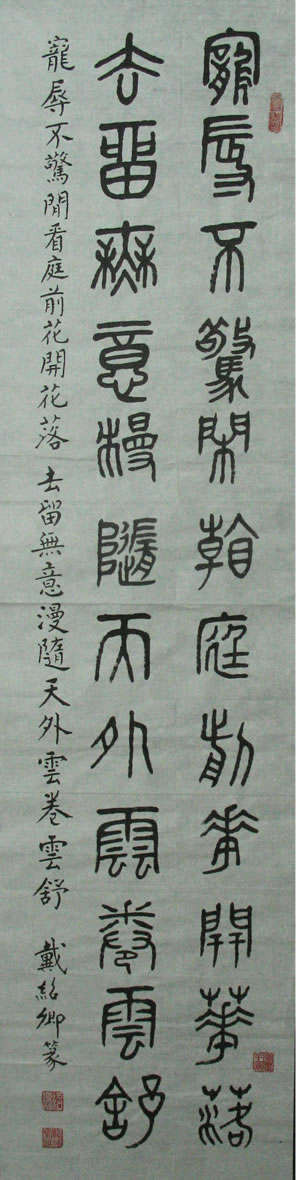 寵辱不驚閒看庭前花開華落
去留無意漫隨天外雲卷雲舒
寵辱不驚閒看庭前花開花落 去留無意漫隨天外雲卷雲舒 戴紹卿篆